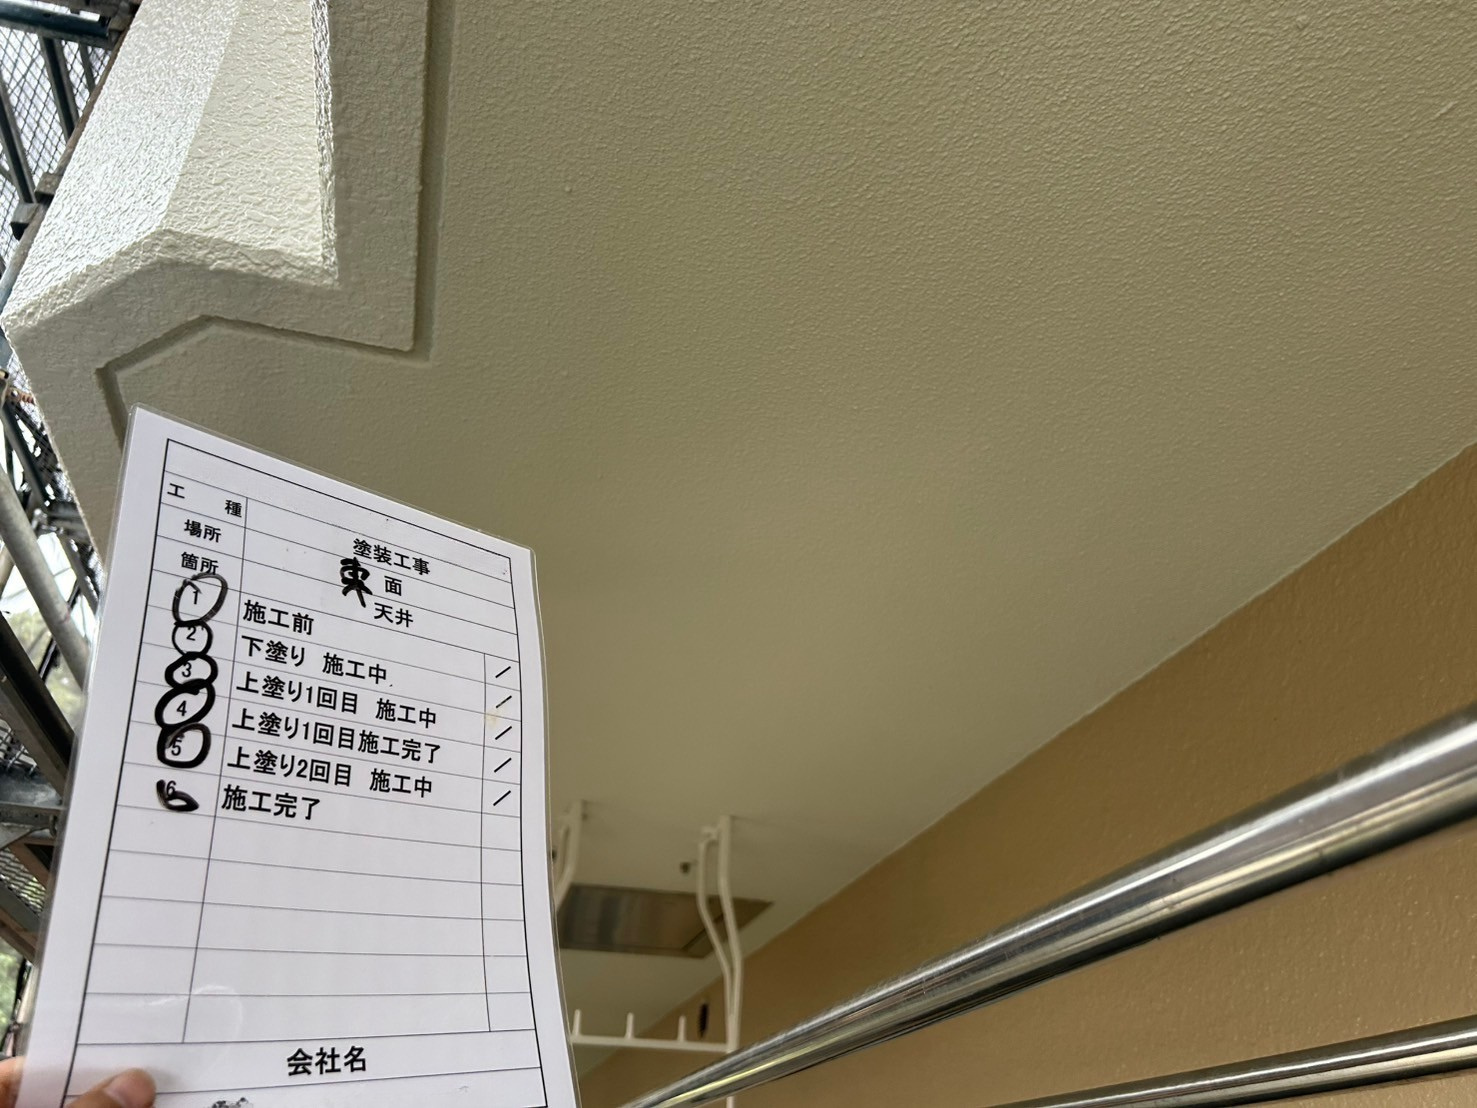 工 種 塗装工事
場所 東 面
箇所 天井
1 施工前
2 下塗り 施工中 /
3 上塗り1回目 施工中 /
4 上塗り1回目施工完了 /
5 上塗り2回目 施工中 /
6 施工完了 /
会社名